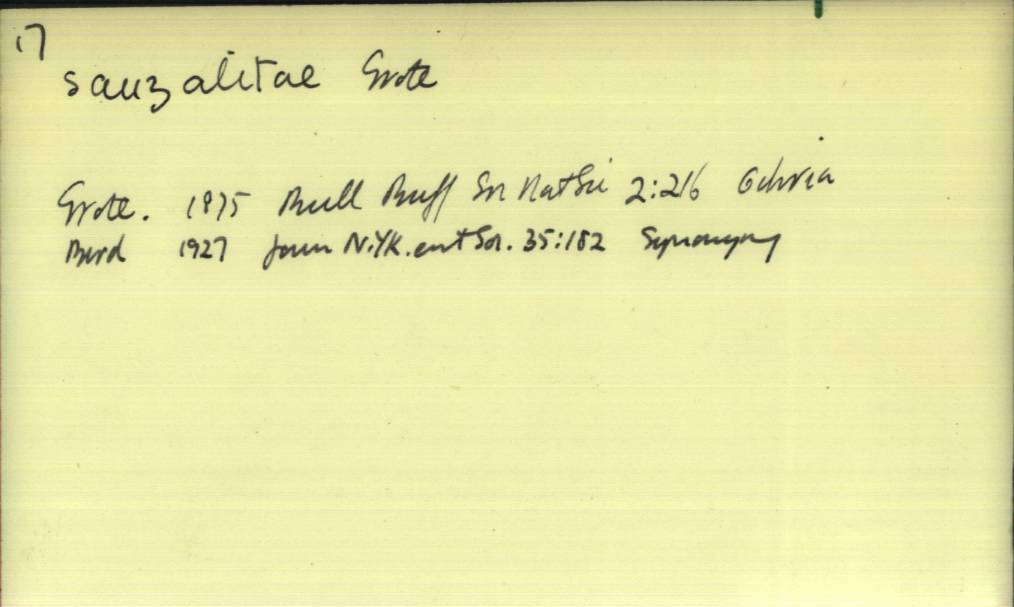 17
sauzalitae Grote
Grote. 1875 Bull Buff Soc Nat Sci 2:216 Ochria
Bird 1927 Journ N.YK. ent Soc. 35:182 Synonymy